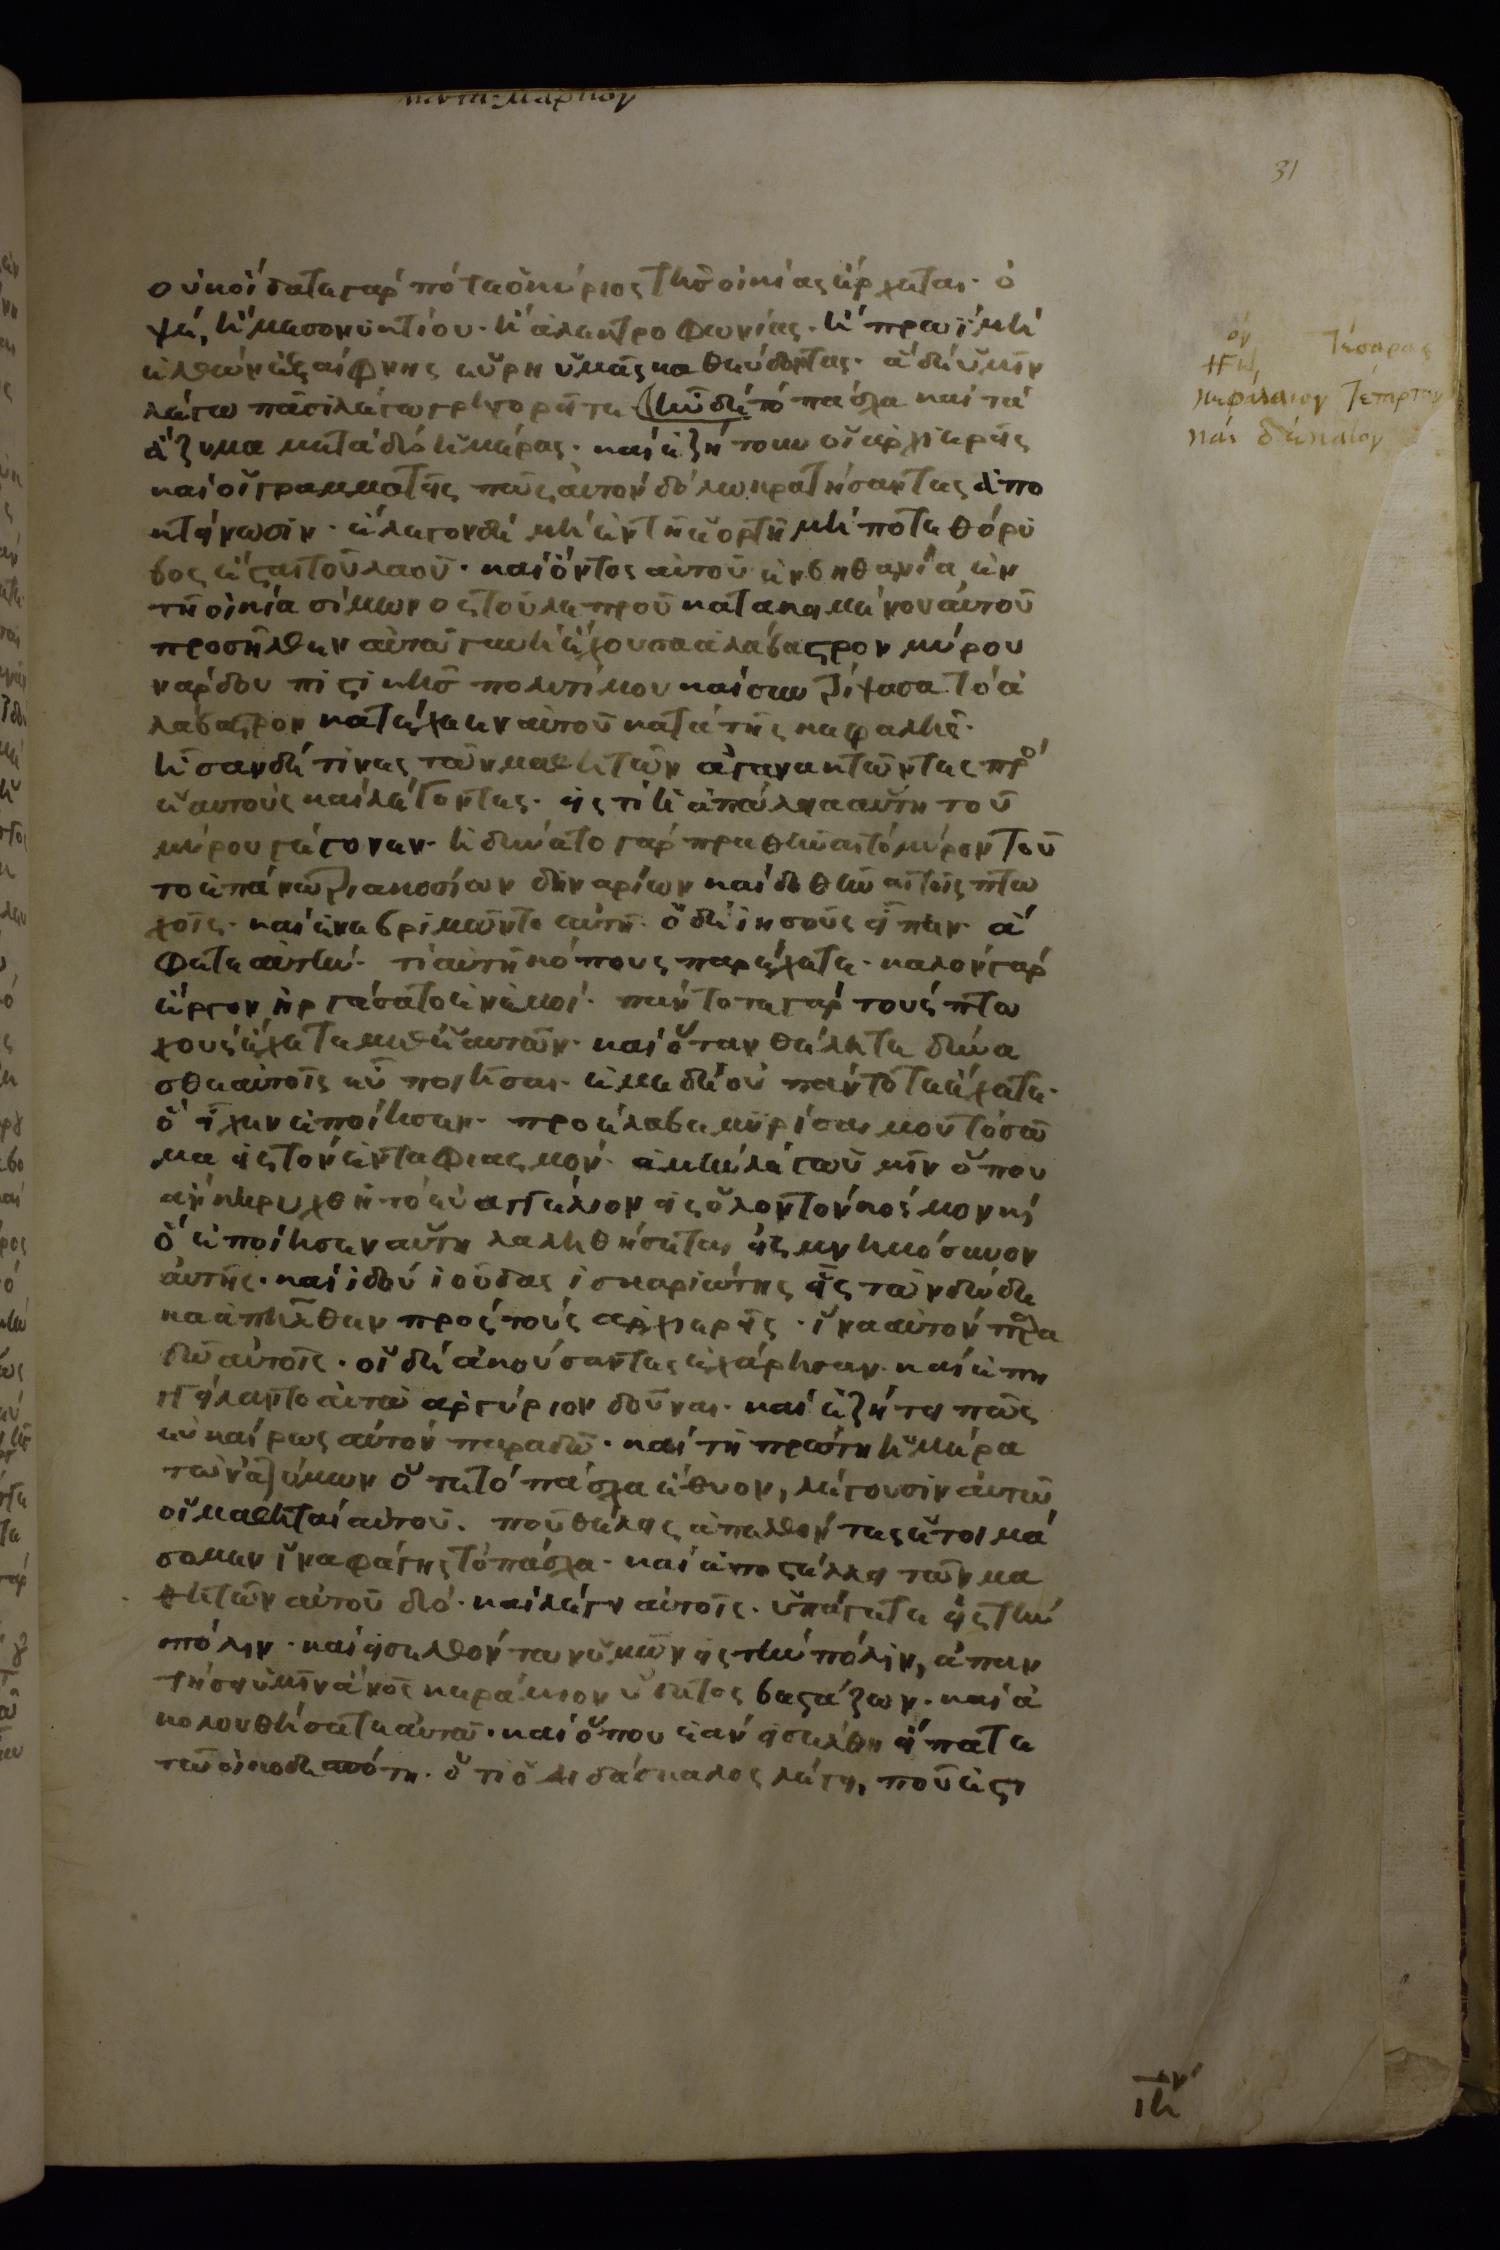 κατα μάρκον
31
οὐκ οἴδατε γὰρ πότε ὁ κύριος τῆς οἰκίας ἔρχεται· ὀ
ψέ, ἢ μεσονυκτίου· ἢ ἀλεκτροφωνίας· ἢ πρωΐ· μὴ
ἐλθὼν ἐξαίφνης εὕρη ὑμᾶς καθεύδοντας· ἃ δὲ ὑμῖν
λέγω πᾶσι λέγω γρηγορεῖτε· ἦν δὲ τὸ πάσχα καὶ τὰ
ἄζυμα μετὰ δύο ἡμέρας· καὶ ἐζήτουν οἱ ἀρχιερεῖς
καὶ οἱ γραμματεῖς πῶς αὐτὸν δόλω κρατήσαντες ἀπο
κτείνωσιν· ἔλεγον δὲ μὴ ἐν τῆ ἑορτῆ μήποτε θόρυ
βος ἔσται τοῦ λαοῦ· καὶ ὄντος αὐτοῦ ἐν βηθανία ἐν
τῆ οἰκία σίμωνος τοῦ λεπροῦ κατακειμένου αὐτοῦ
προσῆλθεν αὐτῶ γυνὴ ἔχουσα ἀλάβαστρον μύρου
νάρδου πιστικῆς πολυτίμου καὶ συντρίψασα τὸ ἀ
λάβαστρον κατέχεεν αὐτοῦ κατὰ τῆς κεφαλῆς·
ἦσαν δέ τινες τῶν μαθητῶν ἀγανακτῶντες πρὸ
ἑαυτοὺς καὶ λέγοντες· εἰς τί ἡ ἀπώλεια αὕτη τοῦ
μύρου γέγονεν· ἠδύνατο γὰρ πραθῆναι τὸ μύρον τοῦ
το ἐπάνω τριακοσίων δηναρίων καὶ δοθῆναι τοῖς πτω
χοῖς· καὶ ἐνεβριμῶντο αὐτῆ· ὁ δὲ ἰησοῦς εἶπεν· ἄ
φετε αὐτήν· τί αὐτῆ κόπους παρέχετε· καλὸν γὰρ
ἔργον ἠργάσατο ἐν ἐμοί· πάντοτε γὰρ τοὺς πτω
χοὺς ἔχετε μεθ ἑαυτῶν· καὶ ὅταν θέλητε δύνα
σθε αὐτοῖς εὖ ποιῆσαι· ἐμὲ δὲ οὐ πάντοτε ἔχετε·
ὃ εἶχεν ἐποίησεν· προέλαβε μυρίσαι μου τὸ σῶ
μα εἰς τὸν ἐνταφιασμόν· ἀμὴν λέγω ὑμῖν ὅπου
ἂν κηρυχθῆ τὸ εὐαγγέλιον εἰς ὅλον τὸν κόσμον καὶ
ὃ ἐποίησεν αὕτη λαληθήσεται εἰς μνημόσυνον
αὐτῆς· καὶ ἰδοὺ ἰούδας ἰσκαριώτης εἷς τῶν δώδε
κα ἀπῆλθεν πρὸς τοὺς ἀρχιερεῖς· ἵνα αὐτὸν πρα
δῶ αὐτοῖς· οἱ δὲ ἀκούσαντες ἐχάρησαν· καὶ ἐπη
γγείλαντο αὐτῶ ἀργύριον δοῦναι· καὶ ἐζήτει πῶς
εὐκαίρως αὐτὸν παραδῶ· καὶ τῆ πρώτη ἡμέρα
τῶν ἀζύμων ὅτε τὸ πάσχα ἔθυον, λέγουσιν αὐτῶ
οἱ μαθηταὶ αὐτοῦ. ποῦ θέλεις ἀπελθόντες ἑτοιμά
σομεν ἵνα φάγης τὸ πάσχα· καὶ ἀποστέλλει τῶν μα
θητῶν αὐτοῦ δύο· καὶ λέγει αὐτοῖς· ὑπάγετε εἰς τὴν
πόλιν· καὶ εἰσελθόντων ὑμῶν εἰς τὴν πόλιν, ἀπαν
τήσει ὑμῖν ἄνος κεράμιον ὕδατος βαστάζων· καὶ ἀ
κολουθήσατε αὐτῶ· καὶ ὅπου ἐὰν εἰσέλθη εἴπατε
τῶ οἰκοδεσπότη· ὅτι ὁ διδάσκαλος λέγει, ποῦ ἐστι
τέσαρας
κεφάλαιον τέταρτον
καὶ δέκατον
ιη